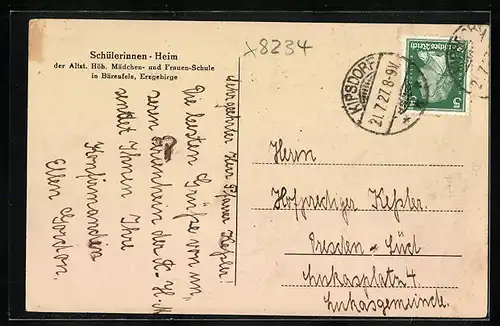 Schülerinnen-Heim
der Altst. Höh. Mädchen- und Frauen-Schule
in Bärenfels, Erzgebirge
x8234
KIPSDORF
21.7.27.8-9V.
Deutsches Reich
5 5
Sehrgeehrter Herr Pfarrer Keßler!
Die besten Grüße von un,
serm Ferienheim der D. H. M.
sendet Ihnen Ihre
Konfirmandin
Ellen Gordon.
Herrn
Hofprediger Keßler.
Dresden = Süd
Lukasplatz 4
Lukasgemeinde.